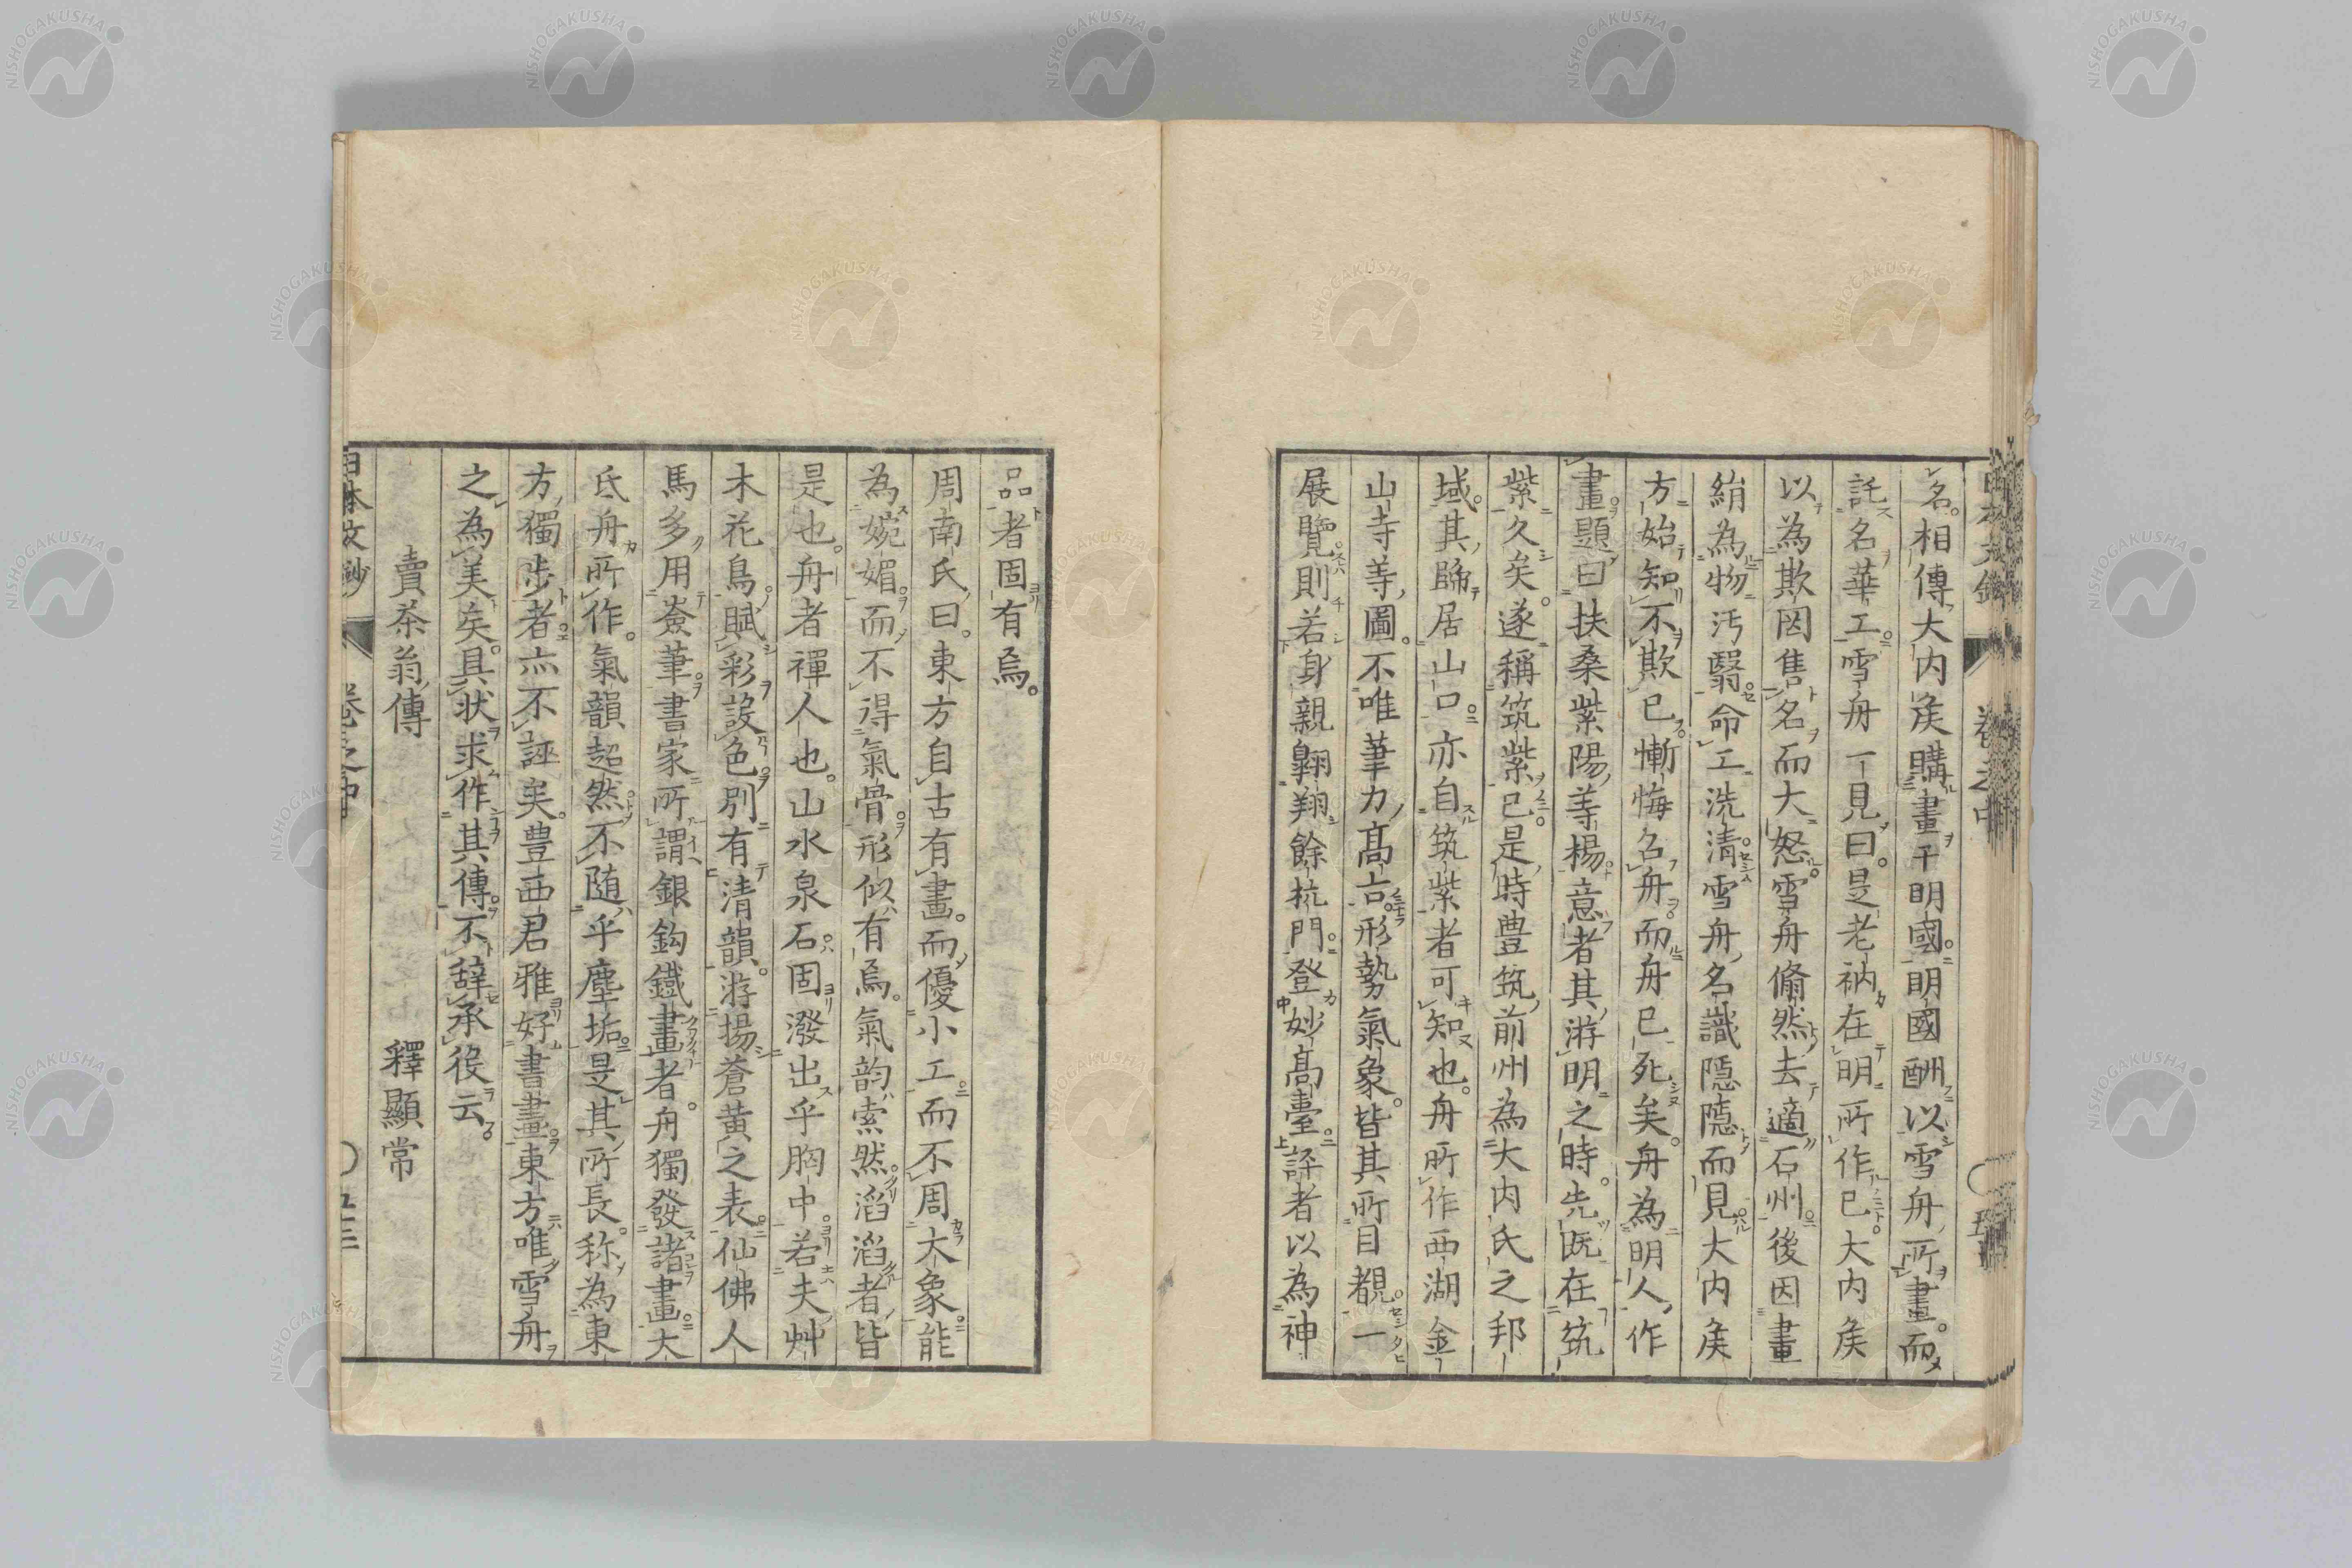 名。相傳大内矦購畫于明國。明國酬以雪舟所畫。而
託名華工。雪舟一見曰。是老衲在明所作已。大内矦
以為欺罔售名。而大怒。雪舟翛然去適石州。後因畫
絹為物汚翳。命工洗清。雪舟名識隱隱而見。大内矦
方始知不欺已。慚悔召舟。而舟已死矣。舟為明人作
畫。題曰扶桑紫陽等楊。意者其游明之時。先既在筑
紫久矣。遂稱筑紫已。是時豊筑前州為大内氏之邦
域。其歸居山口。亦自筑紫者可知也。舟所作西湖金
山寺等圖。不唯筆力高古。形勢氣象。皆其所目覩。一
展覽。則若身親翺翔餘杭門。登妙高臺。評者以為神
品者固有焉。
周南氏曰。東方自古有畫。而優小工而不周大象。能
為婉媚。而不得氣骨。形似有焉。氣韵索然。滔滔者皆
是也。舟者禪人也。山水泉石。固潑出乎胸中。若夫艸
木花鳥。賦彩設色。別有清韻。游揚蒼黄之表。仙佛人
馬多用蒼筆。書家所謂銀鈎鐵畫者。舟獨發諸畫。大
氐舟所作。氣韻超然。不随乎塵垢。是其所長。称為東
方獨歩者。亦不誣矣。豊西君雅好書畫。東方唯雪舟
之為美矣。具状求作其傳。不辞承役云。
賣茶翁傳 釋顯常
日本文鈔 卷之中